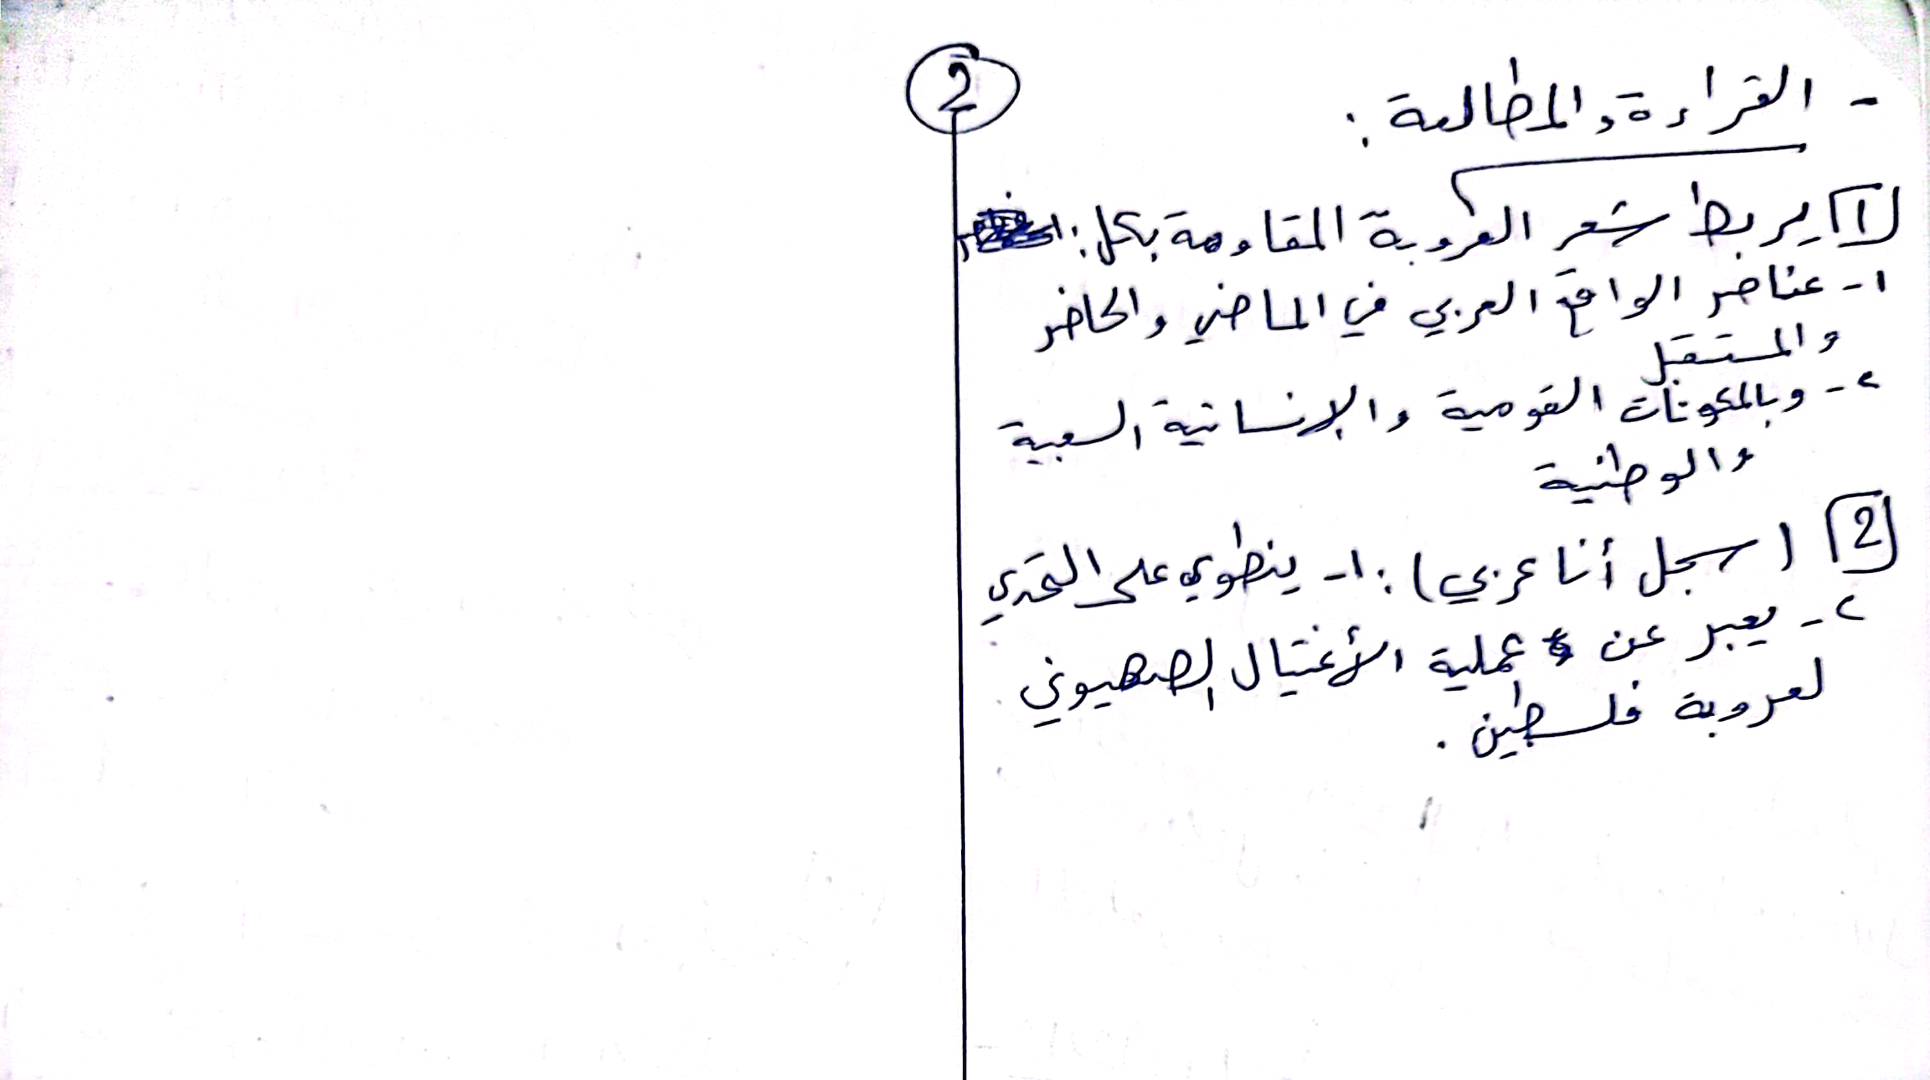 2
- القراءة والمطالعة :
1 يربط شعر العروبة المقاومة بكل :
١- عناصر الواقع العربي في الماضي والحاضر
والمستقبل
٢- وبالمكونات القومية والإنسانية السعبية
والوطنية
2 (سجل أنا عربي) : ١- ينطوي على التحدي
٢- يعبر عن عملية الأغتيال الصهيوني
لعروبة فلسطين .